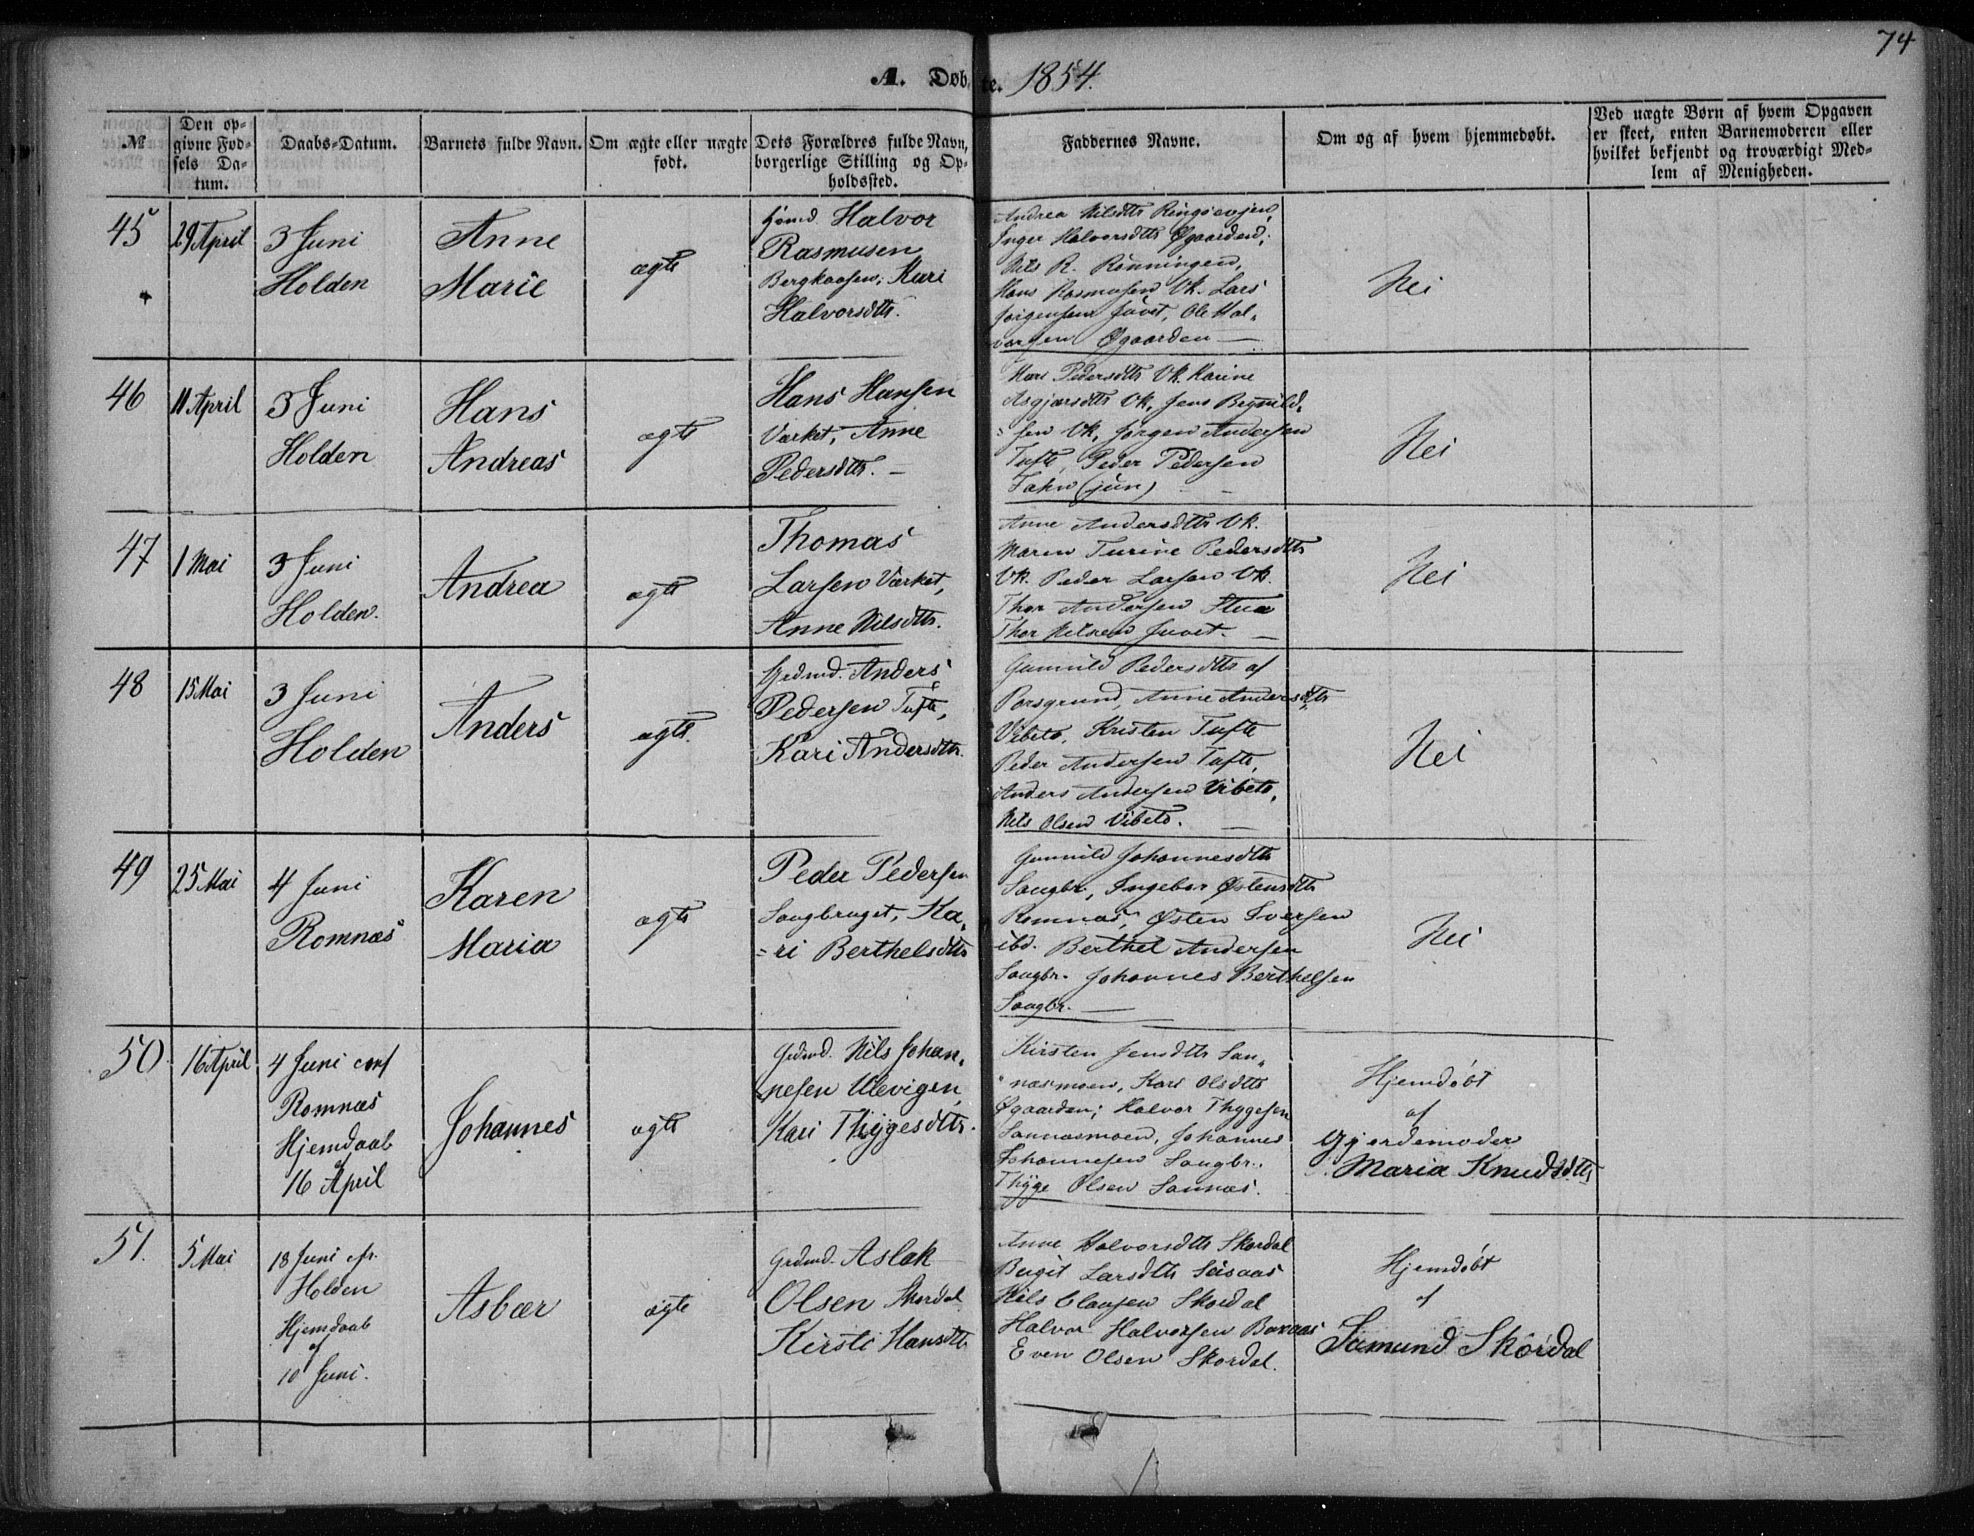 74
A. Døbte. 1854.
№
Den opgivne Fødsels Datum.
Daabs-Datum.
Barnets fulde Navn.
Om ægte eller uægte født.
Dets Forældres fulde Navn, borgerlige Stilling og Opholdssted.
Faddernes Navne.
Om og af hvem hjemmedøbt.
Ved uægte Børn af hvem Opgaven er skeet, enten Barnemoderen eller hvilket bekjendt og troværdigt Medlem af Menigheden.
45
29 April
3 Juni
Holden
Anne
Marie
ægte
Halvor
Rasmusen
Bergkaasen, Kari
Halvorsdtr.
Andrea Nilsdtr
Inger Halvorsdtr Øgaarden,
Nils R. Rønningen,
Hans Rasmusen Vk. Lars
Jørgensen Juvet, Ole Hal„
vorsen Øgaarden —
Nei
46
11 April
3 Juni
Holden
Hans
Andreas
ægte
Hans Hansen
Værket, Anne
Pedersdtr. —
Mari Pedersdtr Vk. Karine
Asgjærsdtr Vk, Jens
sen Vk, Jørgen Andersen
Tufte, Peder Pedersen
(jun)
Nei
47
1 Mai
3 Juni
Holden.
Andrea
ægte
Thomas
Larsen Værket,
Anne Nilsdtr.
Anne Andersdtr Vk.
Maren Turine Pedersdtr
Vk. Peder Larsen Vk.
Thor Andersen Stua
Thor Nilsen Juvet. —
Nei
48
15 Mai
3 Juni
Holden
Anders
ægte.
Grdmd. Anders
Pedersen Tufte,
Kari Andersdtr.
Gunnild Pedersdtr af
Porsgrund, Anne Andersdtr
Vibeto, Kristen Tufte
Peder Andersen Tufte,
Anders Andersen Vibeto,
Nils Olsen Vibeto. —
Nei
49
25 Mai
4 Juni
Romnæs
Karen
Maria
ægte
Peder Pedersen
Saugbruget, Ka„
=ri Berthelsdtr
Gunnild Johannesdtr
Saugbr, Ingebor Østensdtr
Romnæs, Østen Iversen
ibd. Berthel Andersen
Saugbr. Johannes Berthelsen
Saugbr. —
Nei
50.
16 April
4 Juni conf
Romnæs
Hjemdaab
af
16 April
Johannes
ægte
Grdmd. Nils Johan„
nesen Ulevigen,
Kari Thygesdtr.
Kirsten Jensdtr San„
næsmoen, Kari Olsdtr
Øgaarden; Halvor Thygesen
Sannæsmoen, Johannes
Johannesen Saugbr.,
Thyge Olsen Sannæs.
Hjemdøbt
af
Gjordemoder
Maria Knudsdtr
51.
5 Mai
18 Juni cfr.
Holden
Hjemdaab
af
10 Juni.
Asbær
ægte
Grdmd. Aslak
Olsen Skordal
Kirsti Hansdtr
Anne Halvorsdtr Skordal
Birgit Larsdtr Seisaas
Nils Clausen Skordal
Halvor Halvorsen Boraas
Even Olsen Skordal.
Hjemdøbt
af
Samund Skordal